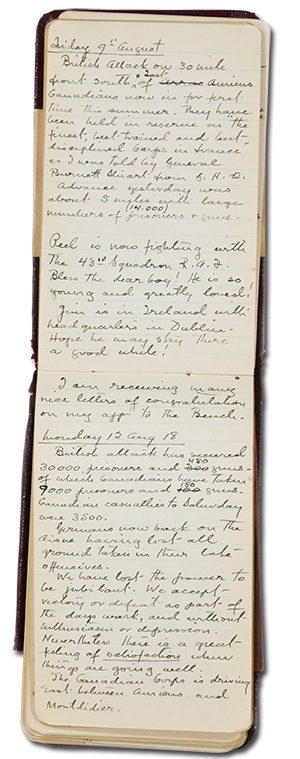 Friday 9th August
British Attack on 30 mile
front South & East of Amiens
Canadians now in for first
time this summer. They have
been held in reserve as "the
finest, best trained and best
disciplined Corps in France"
as I was told by General
Burnett Stuart from G. H. Q.
Advance yesterday was
about 5 miles with large
numbers of prisoners & guns.
(14,000)
Peel is now fighting with
the 43rd Squadron R.A.F.
Bless the dear boy! He is so
young and greatly loved!
Jim is in Ireland with
headquarters in Dublin.
Hope he may stay there
a good while!
I am receiving many
nice letters of congratulation
on my appt to the Bench.
Monday 12 Aug 18
British attack has secured
30000 prisoners and 450 guns
of which Canadians have taken
9000 prisoners and 150 guns.
Canadian casualties to Saturday
were 3500.
Germans now back on the
Aisne having lost all
ground taken in their late
offensives.
We have lost the power to
be jubilant. We accept
victory or defeat as part of
the days work, and without
enthusiasm or depression.
Nevertheless there is a great
feeling of satisfaction when
things are going well.
The Canadian Corps is driving
east between Amiens and
Montdidier.